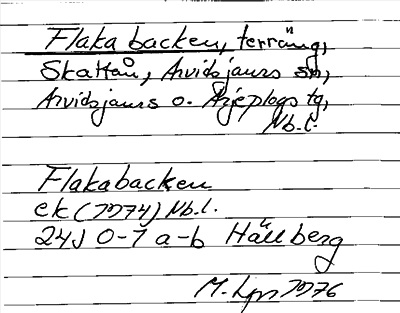 Flakabacken, terräng,
Skattån, Arvidsjaurs sn,
Arvidsjaurs o. Arjeplogs tg,
Nb.l.
Flakabacken
ek (1974) Nb.l.
24J 0-1 a-b Hällberg
M. Lgn 1976